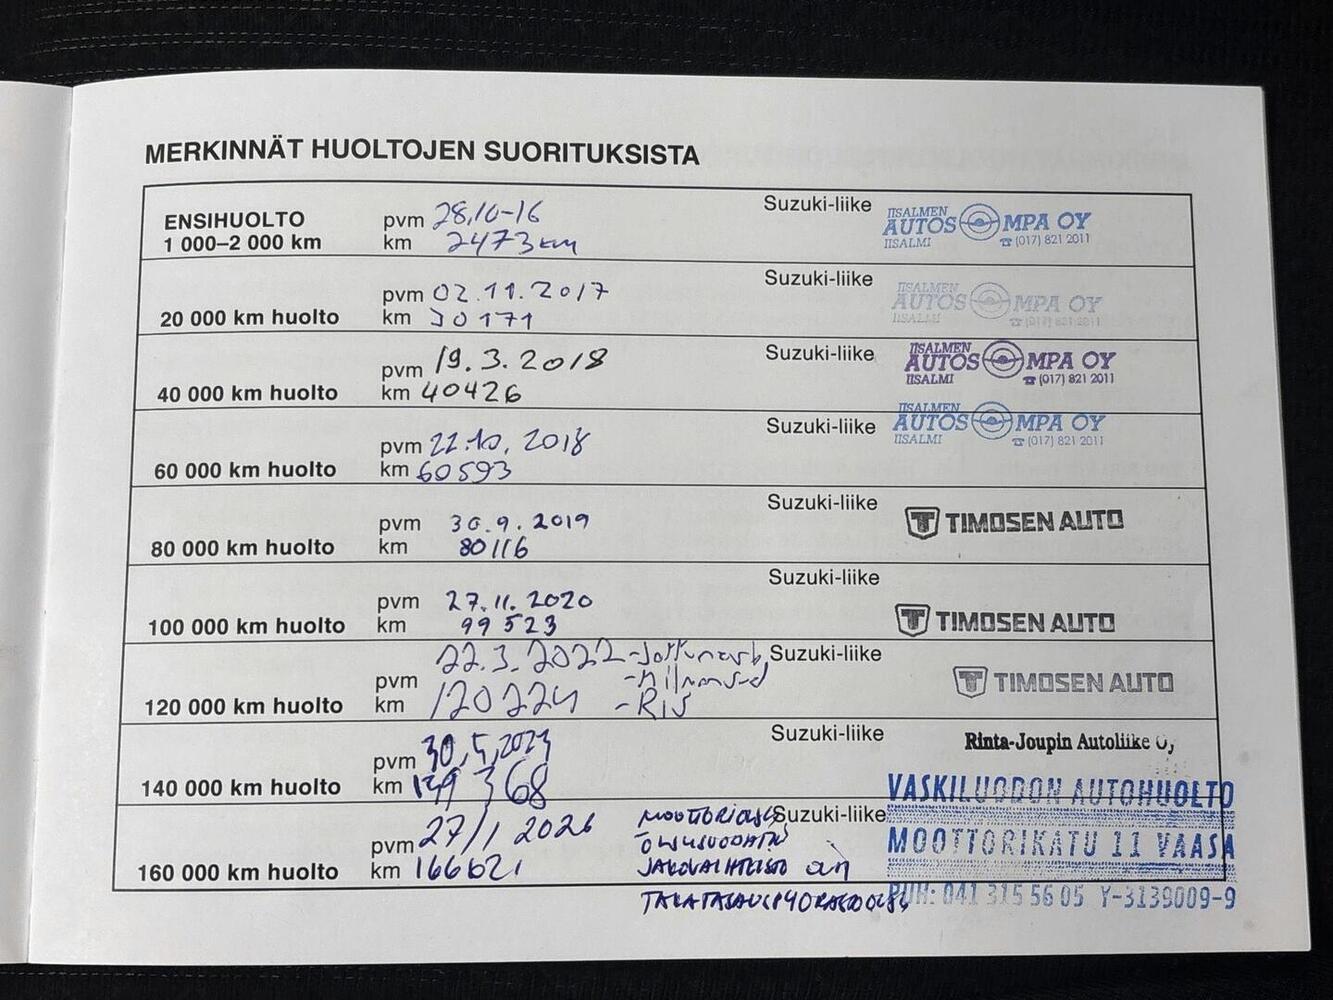 MERKINNÄT HUOLTOJEN SUORITUKSISTA
ENSIHUOLTO pvm 28.10-16 Suzuki-liike IISALMEN AUTOS MPA OY
1 000–2 000 km km 2473 km IISALMI ☎ (017) 821 2011
pvm 02.11.2017 Suzuki-liike IISALMEN AUTOS MPA OY
20 000 km huolto km 30171 IISALMI ☎ (017) 821 2011
pvm 19.3.2018 Suzuki-liike IISALMEN AUTOS MPA OY
40 000 km huolto km 40426 IISALMI ☎ (017) 821 2011
pvm 22.10.2018 Suzuki-liike IISALMEN AUTOS MPA OY
60 000 km huolto km 60593 IISALMI ☎ (017) 821 2011
pvm 30.9.2019 Suzuki-liike TIMOSEN AUTO
80 000 km huolto km 80116
pvm 27.11.2020 Suzuki-liike TIMOSEN AUTO
100 000 km huolto km 99523
pvm 22.3.2022 Suzuki-liike TIMOSEN AUTO
120 000 km huolto km 120224
pvm 30.5.2023 Suzuki-liike Rinta-Joupin Autoliike Oy
140 000 km huolto km 368
pvm 27/1 2026 Suzuki-liike VASKILUODON AUTOHUOLTO
160 000 km huolto km 166621 MOOTTORIKATU 11 VAASA
PUH: 041 315 56 05 Y-3139009-9